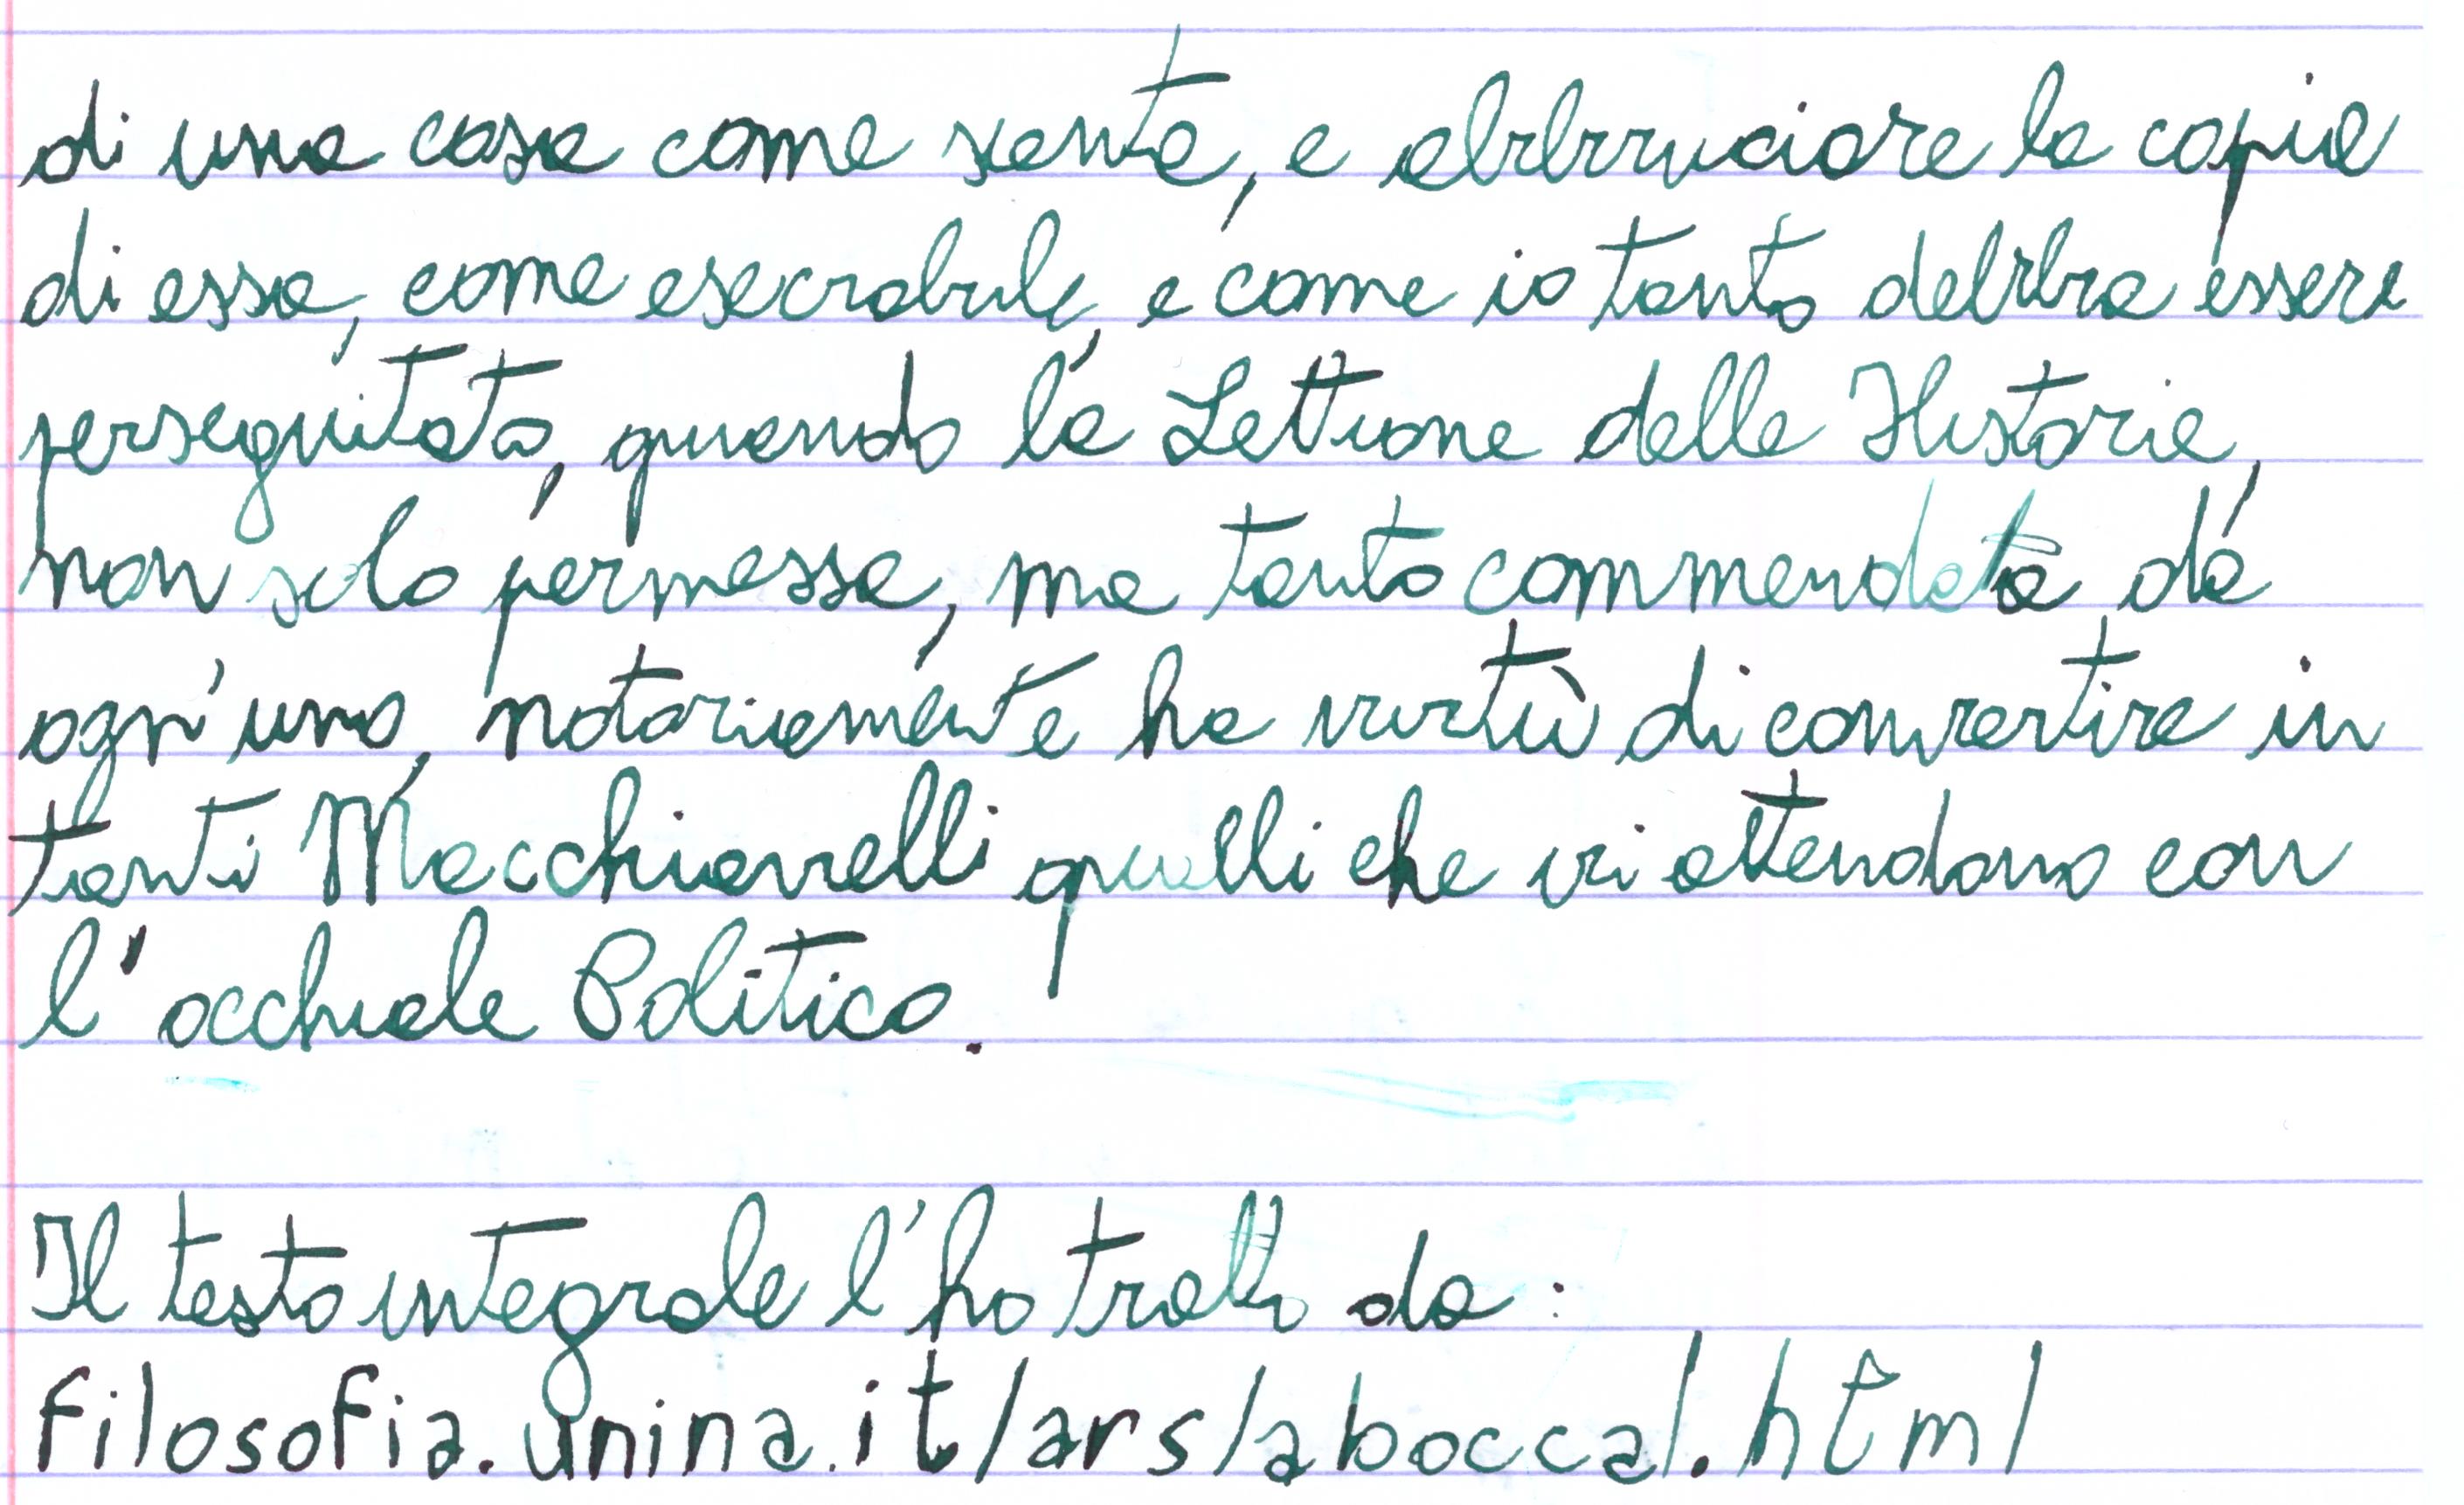 di una cosa come santa, e abbruciare la copia
di essa, come esecrabile, e come io tanto debba essere
perseguitato, quando la Lettione delle Historie,
non solo permessa, ma tanto commendata da
ogn'uno, notoriamente ha virtù di convertire in
tanti Macchiavelli quelli che vi attendono con
l'occhiale Politico.
Il testo integrale l'ho tratto da:
filosofia.unina.it/ars/aboccal.html